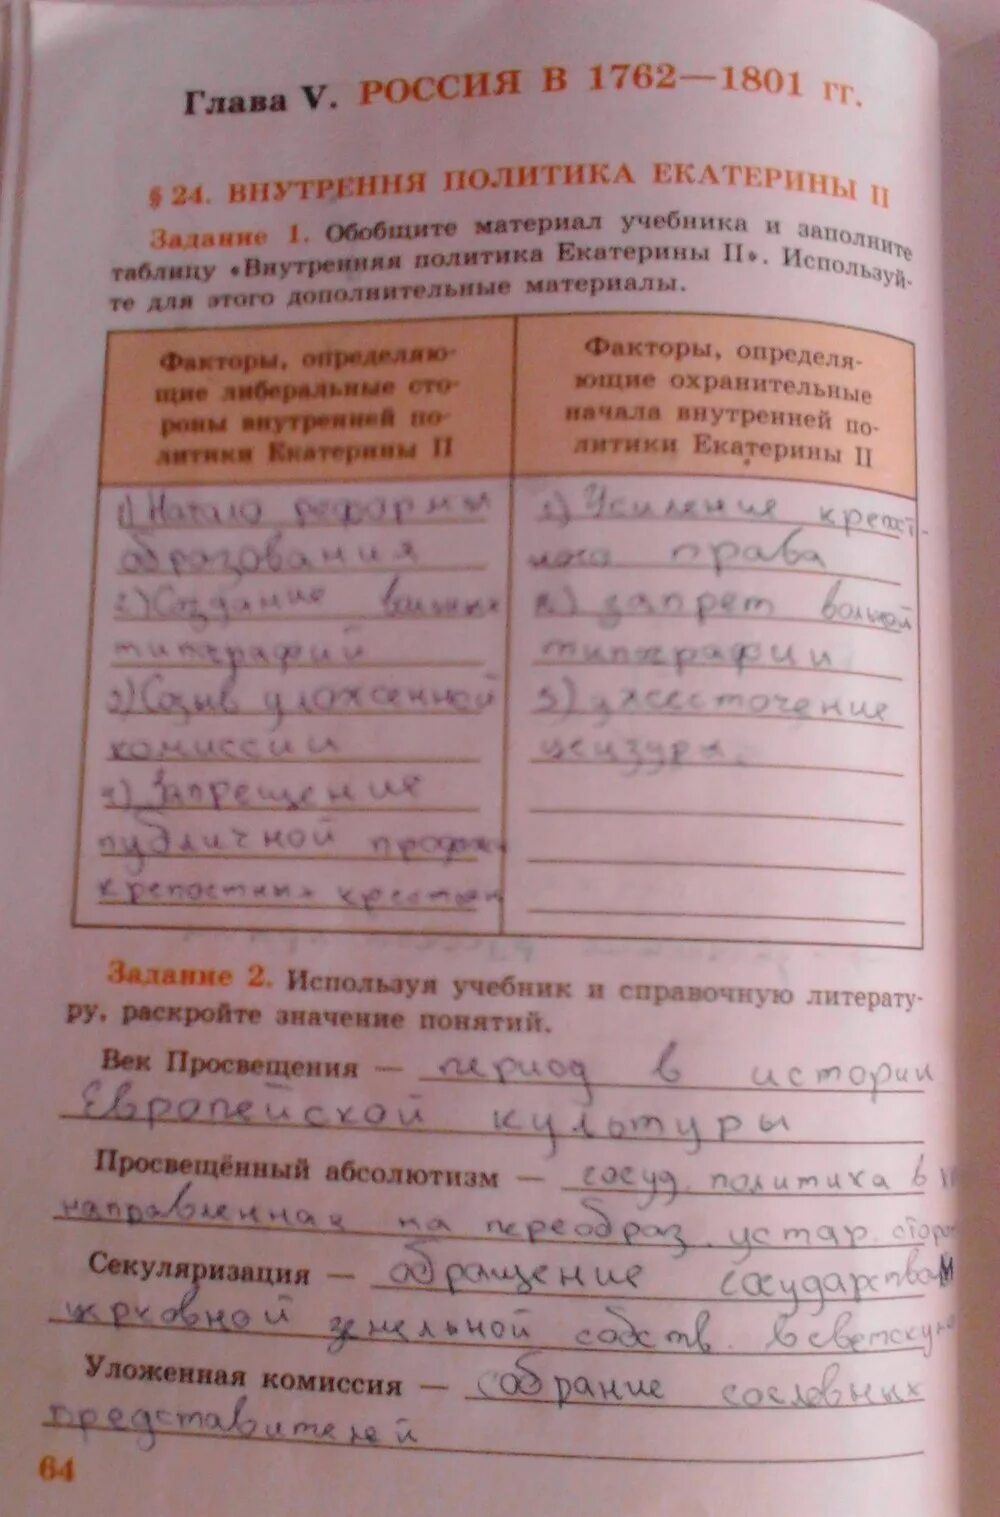 Глава V. РОССИЯ В 1762—1801 гг.
§ 24. ВНУТРЕННЯ ПОЛИТИКА ЕКАТЕРИНЫ II
Задание 1. Обобщите материал учебника и заполните
таблицу «Внутренняя политика Екатерины II». Используй-
те для этого дополнительные материалы.
Факторы, определяю-
щие либеральные сто-
роны внутренней по-
литики Екатерины II
1) Начало реформы
образования
2) Создание вольных
типографий
3) Созыв уложенной
комиссии
4) Запрещение
публичной продажи
крепостных крестьян
Факторы, определя-
ющие охранительные
начала внутренней по-
литики Екатерины II
1) Усиление крепост-
ного права
2) запрет вольной
типографии
3) ужесточение
цензуры.
Задание 2. Используя учебник и справочную литерату-
ру, раскройте значение понятий.
Век Просвещения — период в истории
Европейской культуры
Просвещённый абсолютизм — госуд. политика в
направленная на преобраз. устар. сторон
Секуляризация — обращение государством
церковной земельной собств. в светскую
Уложенная комиссия — собрание сословных
представителей
64